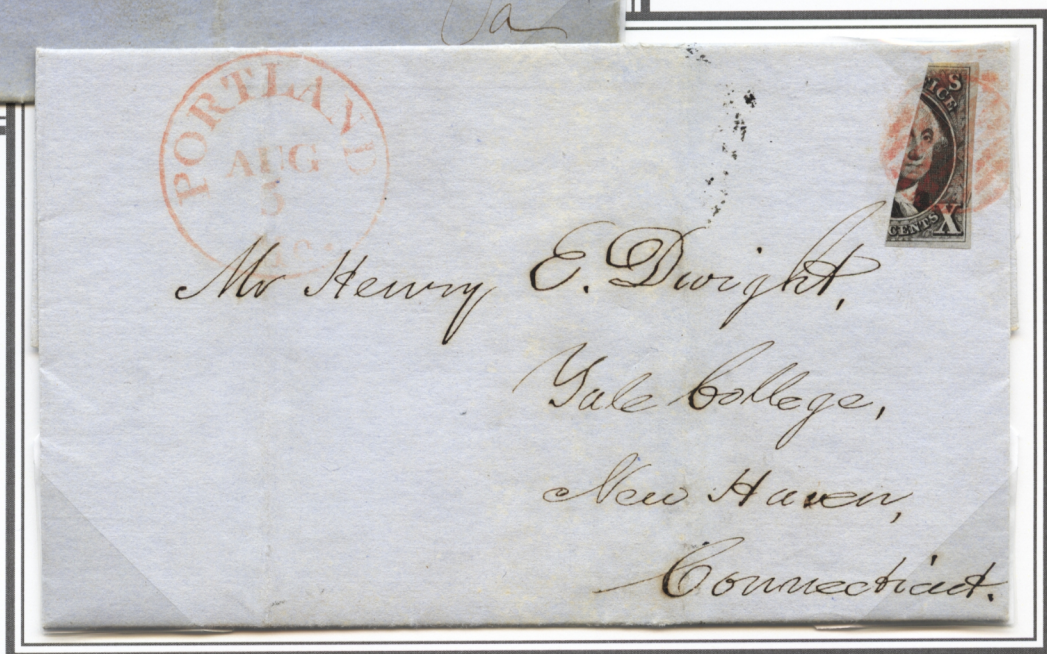 PORTLAND
AUG
5
S
ICE
CENTS X
Mr Henry E. Dwight,
Yale College,
New Haven,
Connecticut.